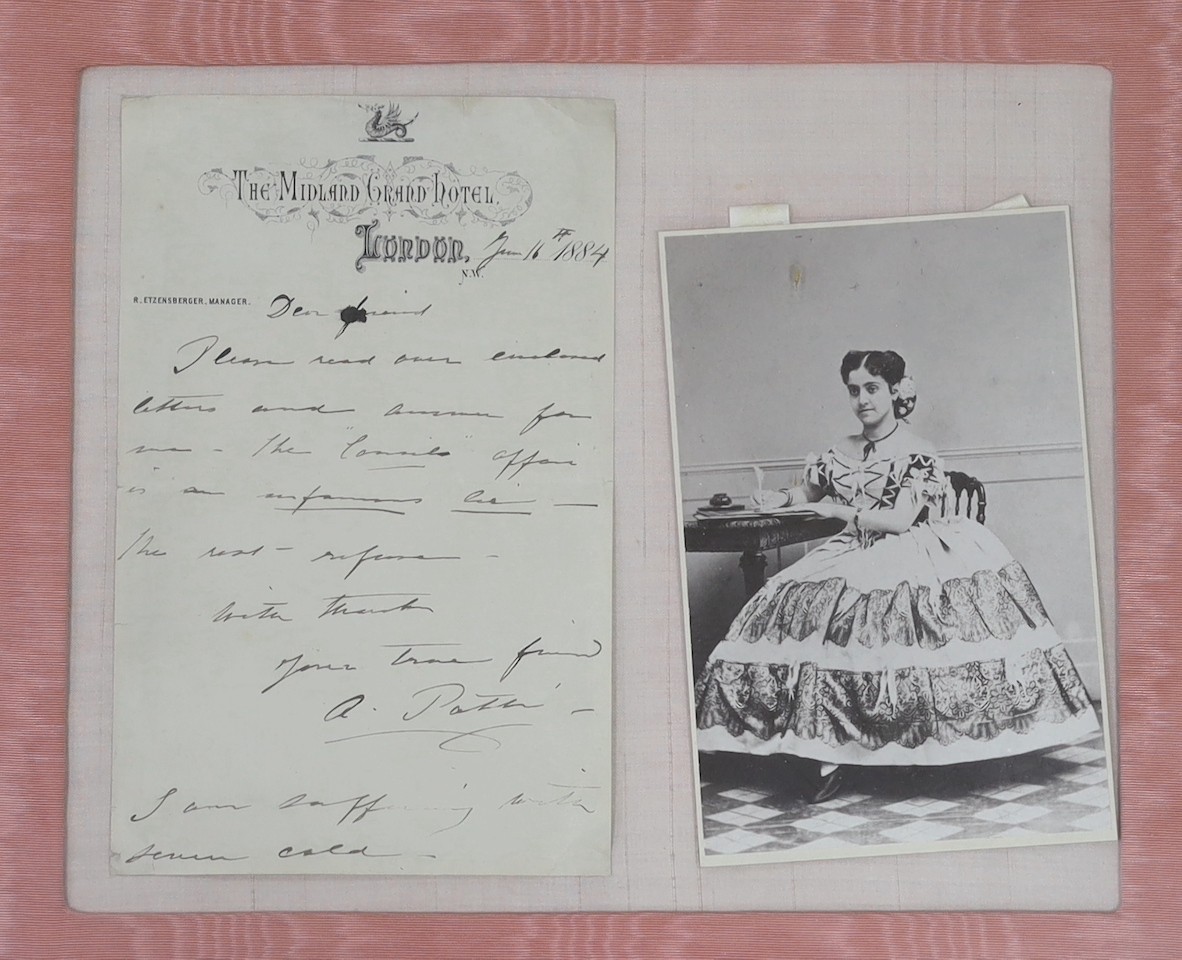 THE MIDLAND GRAND HOTEL.
LONDON, June 16th 1884
N.W.
R. ETZENSBERGER, MANAGER.
Dear friend
Please read over enclosed
letters and answer for
me – the "Consils" affair
is an infamous lie –
the rest – refuse –
with thanks
your true friend
A. Patti –
I am suffering with
severe cold –